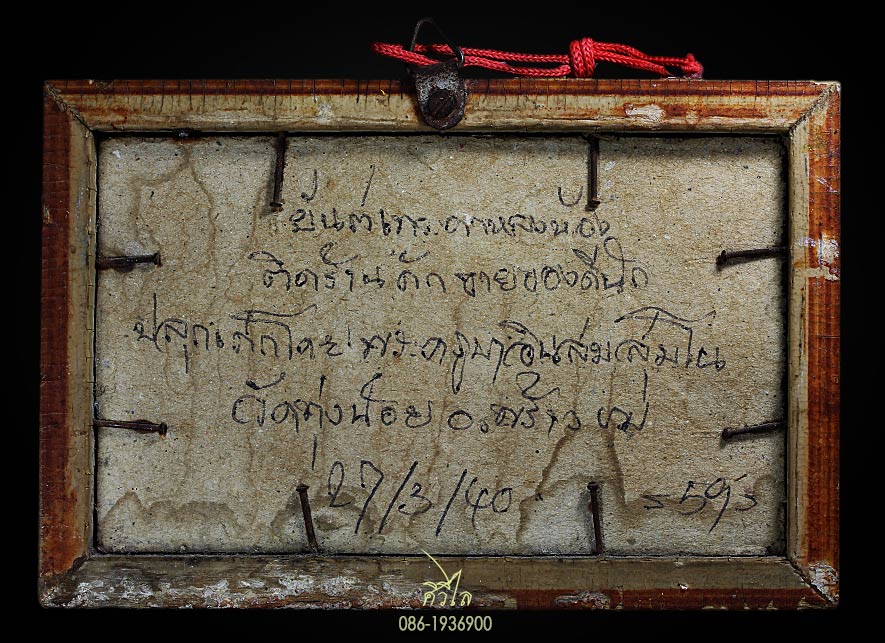 ยันต์เทวะดาหลงห้อง
ติดร้าน ขายของดีนัก
ปลุกเสกโดย พระครูบาอินสม สุมโน
วัดทุ่งน้อย อ.พร้าว ชม
27/3/40
ศิวิไล
086-1936900